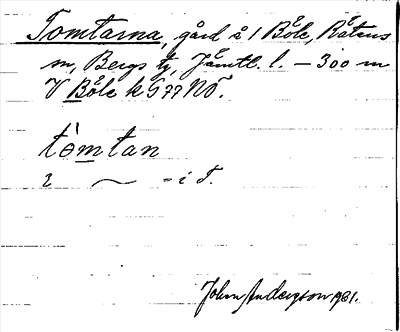 Tomtarna, gård å 1 Böle, Rätans
sn, Bergs tg, Jämtl. l. – 300 m
V Böle k G 77 NÖ.
tòmtan
i ~ = i d.
John Anderson 1931.